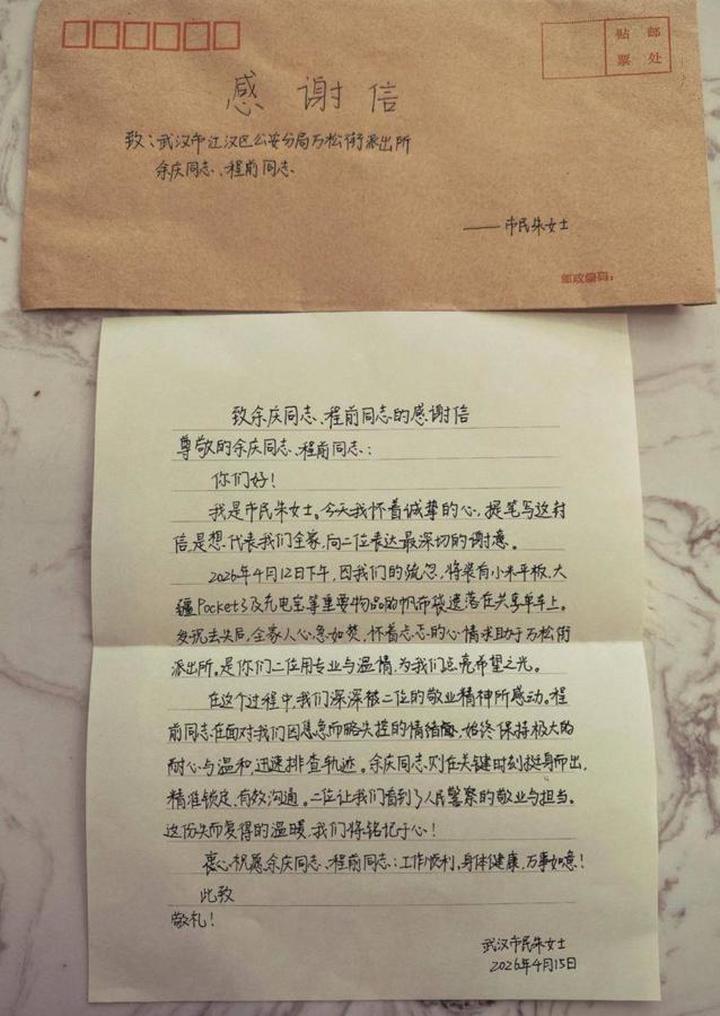 贴 邮
票 处
感谢信
致：武汉市江汉区公安分局万松街派出所
余庆同志、程前同志
——市民朱女士
邮政编码：
致余庆同志、程前同志的感谢信
尊敬的余庆同志、程前同志：
你们好！
我是市民朱女士。今天我怀着诚挚的心，提笔写这封
信，是想代表我们全家，向二位表达最深切的谢意。
2026年4月12日下午，因我们的疏忽，将装有小米平板、大
疆Pocket3及充电宝等重要物品的帆布袋遗落在共享单车上。
发现丢失后，全家人心急如焚，怀着忐忑的心情求助于万松街
派出所。是你们二位用专业与温情，为我们点亮希望之光。
在这个过程中，我们深深被二位的敬业精神所感动。程
前同志在面对我们因焦急而略失控的情绪，始终保持极大的
耐心与温和，迅速排查轨迹。余庆同志则在关键时刻挺身而出，
精准锁定、有效沟通。二位让我们看到了人民警察的敬业与担当。
这份失而复得的温暖，我们将铭记于心！
衷心祝愿余庆同志、程前同志：工作顺利，身体健康，万事如意！
此致
敬礼！
武汉市民朱女士
2026年4月15日